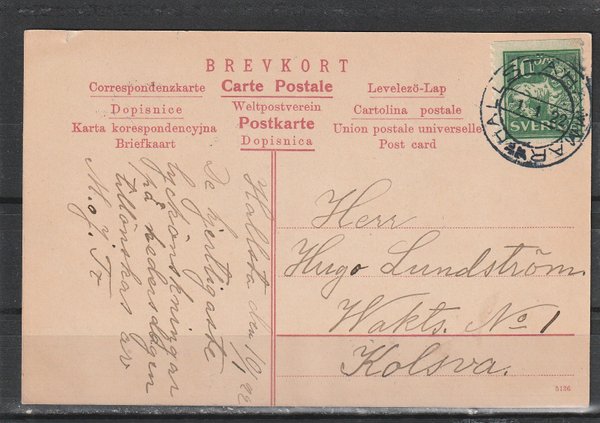 BREVKORT
Correspondenzkarte Carte Postale Levelező-Lap
Dopisnice Weltpostverein Cartolina postale
Karta korespondencyjna Postkarte Union postale universelle
Briefkaart Dopisnica Post card
10 ÖRE
SVERIGE
HALLSTAHAMMAR
1.1.22
Hallsta den 10/1 22
De hjertligaste
lyckönskningar
på hedersdagen
tillönskas av
M. o. J. Fr
Herr
Hugo Lundström
Wakts. No 1
Kolsva.
5136